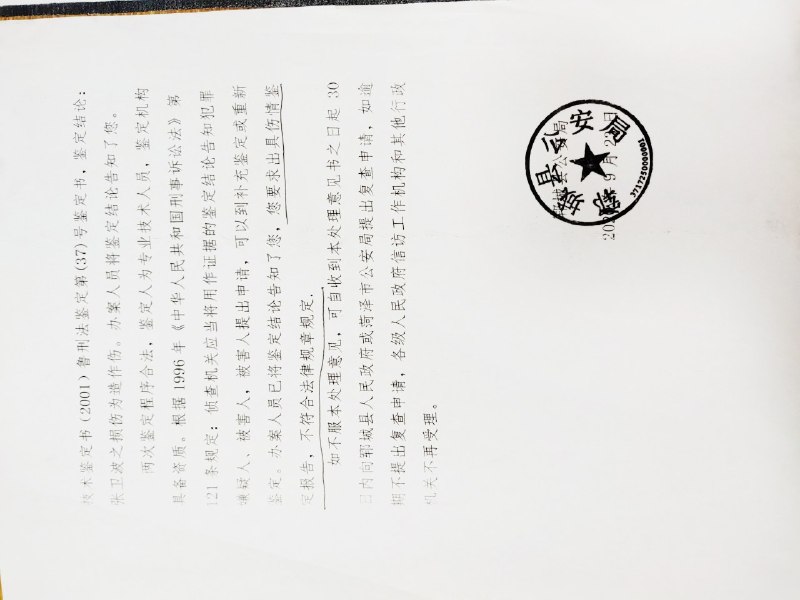 技术鉴定书(2001)鲁刑法鉴定第(37)号鉴定书，鉴定结论：
张卫波之损伤为造作伤。办案人员将鉴定结论告知了您。
两次鉴定程序合法，鉴定人为专业技术人员，鉴定机构
具备资质。根据1996年《中华人民共和国刑事诉讼法》第
121条规定：侦查机关应当将用作证据的鉴定结论告知犯罪
嫌疑人、被害人，被害人提出申请，可以到补充鉴定或重新
鉴定。办案人员已将鉴定结论告知了您，您要求出具伤情鉴
定报告，不符合法律规章规定.
如不服本处理意见，可自收到本处理意见书之日起30
日内向郓城县人民政府或菏泽市公安局提出复查申请，如逾
期不提出复查申请，各级人民政府信访工作机构和其他行政
机关不再受理。
郓城县公安局
9月23日
郓城县公安局